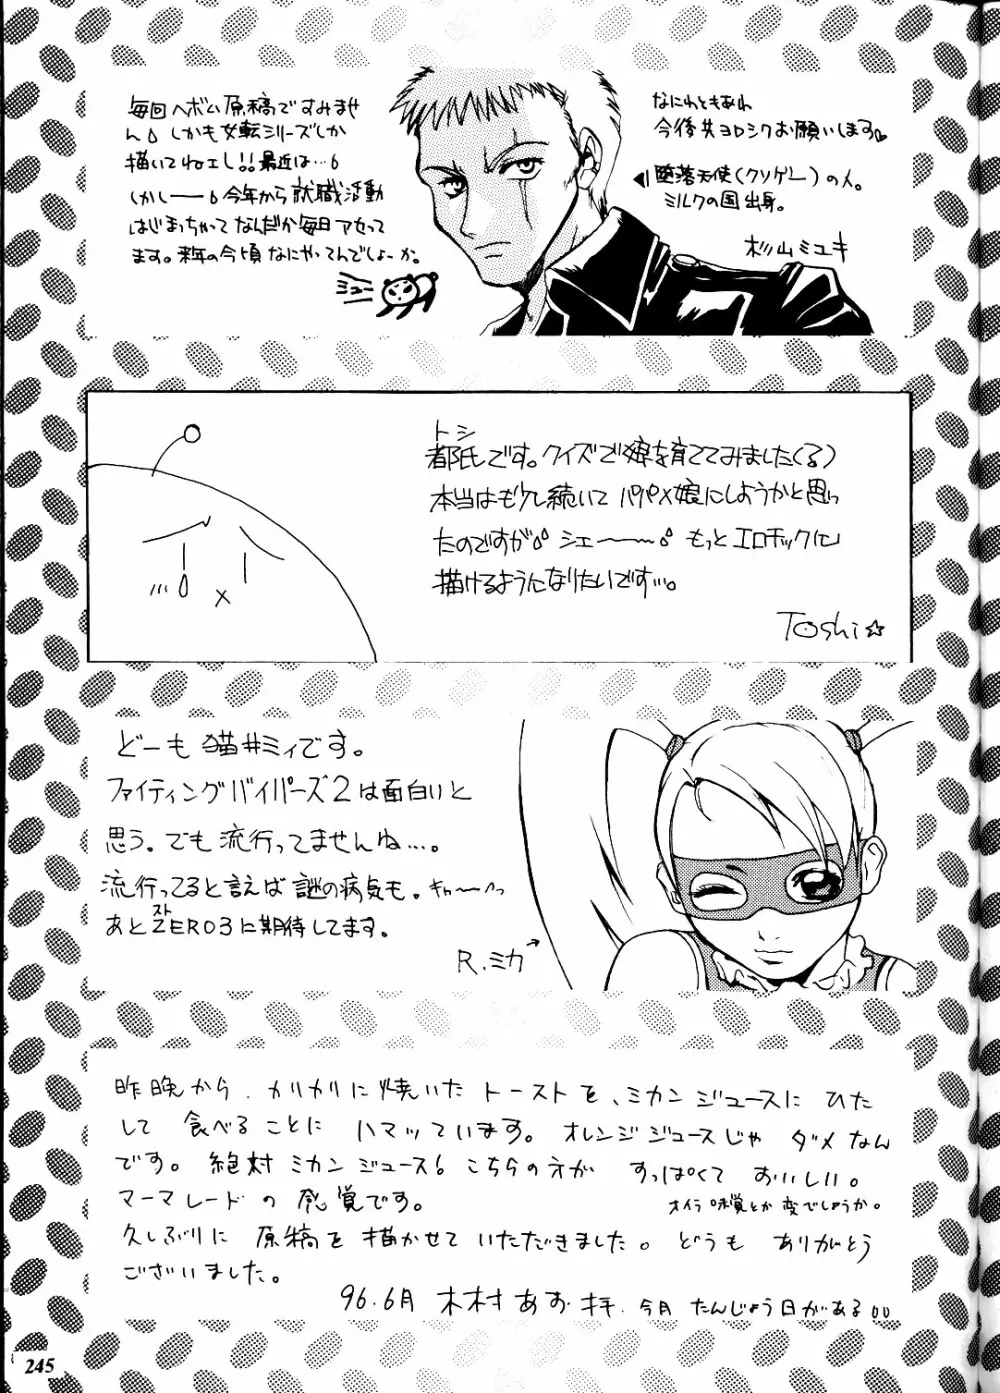 毎回ヘボい原稿ですみませ
ん しかも女転シリーズしか
描いてねェし!!最近は…
しかしーー 今年から就職活動
はじまっちゃってなんだか毎日アセって
ます。来年の今頃なにやってんでしょーか。
ミュー
なにわともあれ
今後共ヨロシクお願いします
◀堕落天使(クソゲー)の人。
ミルクの国出身。
杉山ミユキ
トシ
都氏です。クイズで娘を育ててみました(る)
本当はも少し続いてパパ×娘にしようかと思っ
たのですが シェ〜〜〜 もっとエロチックに
描けるようになりたいです…。
Toshi☆
どーも猫井ミィです。
ファイティングバイパーズ2は面白いと
思う。でも流行ってませんね…。
流行ってると言えば謎の病気も。キャ〜〜っ
あとストZERO3に期待してます。
R.ミカ→
昨晩から、カリカリに焼いたトーストを、ミカンジュースにひた
して食べることにハマッています。オレンジジュースじゃダメなん
です。絶対ミカンジュース。こちらの方がすっぱくておいしい。
マーマレードの感覚です。
オイラ味覚とか変でしょうか。
久しぶりに原稿を描かせていただきました。どうもありがとう
ございました。
96.6月 木村あお 拝.今月たんじょう日がある
245